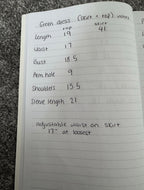 Green dress. (Skirt + top). inches
top skirt
Length 19 41
Waist 17
Bust 18.5
Arm hole 9
Shoulders 13.5
Sleeve length 21
adjustable waist on skirt
13" at loosest